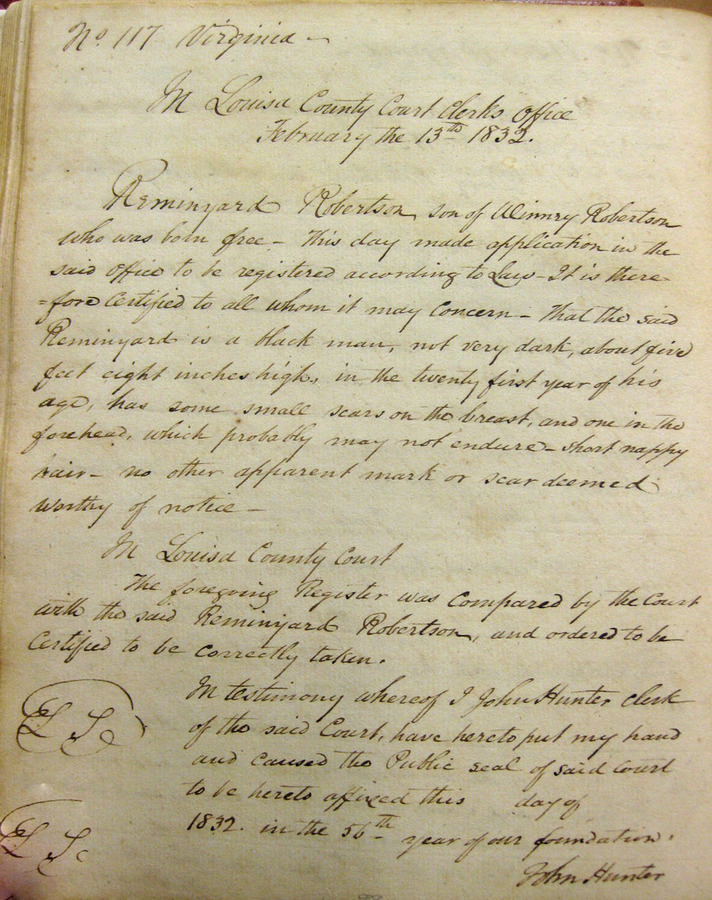 No. 117 Virginia –
In Louisa County Court Clerks Office
February the 13th 1832.
Reminyard Robertson, son of Winney Robertson
who was born free – This day made application in the
said office to be registered according to Law – It is there
=fore Certified to all whom it may Concern – That the said
Reminyard is a black man, not very dark, about five
feet eight inches high, in the twenty first year of his
age, has some small scars on the breast, and one in the
forehead, which probably may not endure – short nappy
hair – no other apparent mark or scar deemed
worthy of notice –
In Louisa County Court
The foregoing Register was compared by the Court
with the said Reminyard Robertson, and ordered to be
Certified to be correctly taken.
In testimony whereof I John Hunter, clerk
of the said Court, have hereto put my hand
and caused the Public seal of said Court
to be hereto affixed this day of
1832. in the 56th year of our foundation.
John Hunter
L S
L S